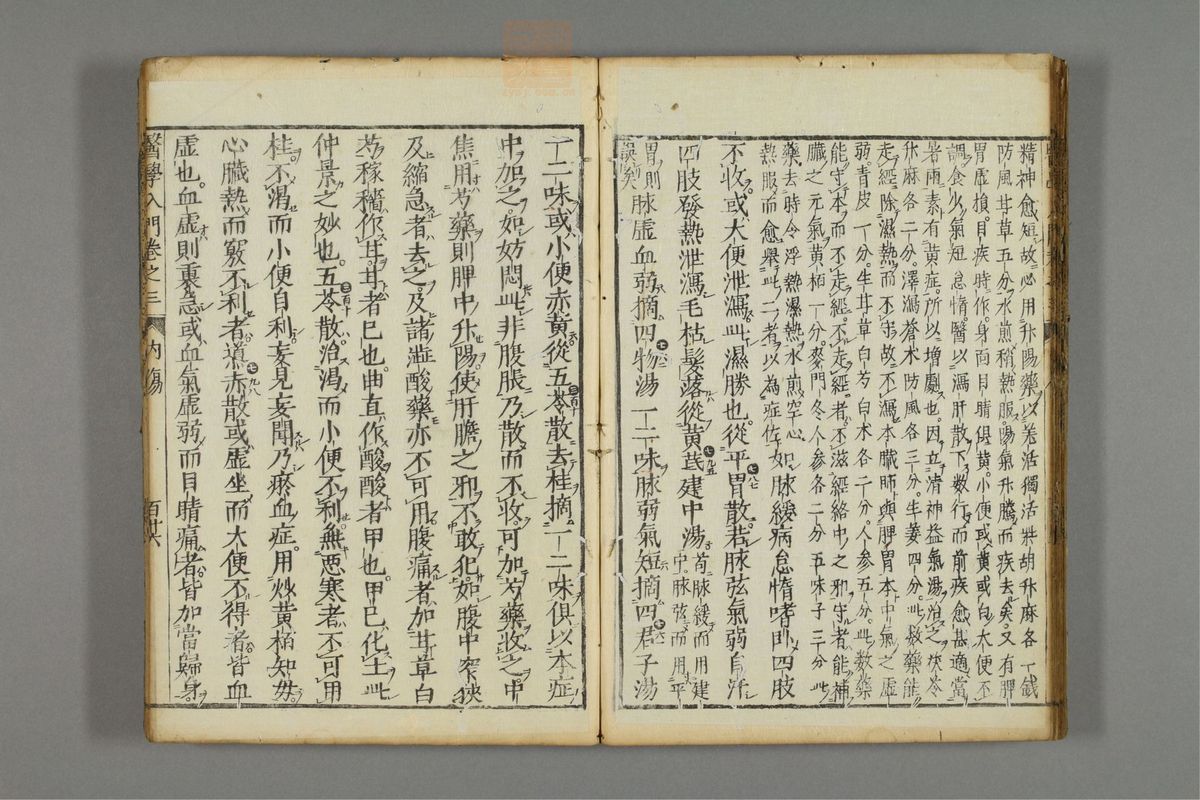 精神愈短故必用升陽藥以羌活獨活柴胡升麻各一錢
防風甘草五分水煎稍熱服陽氣升騰而疾去矣又有脾
胃虛損目疾時作身面目睛俱黃小便或黃或白大便不
調食少氣短怠惰醫以瀉肝散下數行而前疾愈甚適當
暑雨素有黃症所以增劇也因立清神益氣湯治之茯苓
升麻各二分澤瀉蒼朮防風各三分生姜四分此數藥能
走經除濕熱而不守故不瀉本臟師與脾胃本中氣之虛
弱青皮一分生甘草白芍白朮各二分人參五分此數藥
能守本而不走經不走經者不滋經絡中之邪守者能補
臟之元氣黃栢一分麥門冬人參各二分五味子三分此
藥去時令浮熱濕熱水煎空心
熱服而愈舉此二者以為症佐如脉緩病怠惰嗜卧四肢
不收或大便泄瀉此濕勝也從平胃散若脉弦氣弱自汗
四肢發熱泄瀉毛枯髮落從黃芪建中湯苟脉緩而用建
中脉弦而用平
胃則
誤矣脉虛血弱摘四物湯一二味脉弱氣短摘四君子湯
一二味或小便赤黃從五苓散去桂摘一二味俱以本症
中加之如妨悶此非腹脹乃散而不收可加芍藥收之中
焦用芍藥則脾中升陽使肝膽之邪不敢犯如腹中窄狹
及縮急者去之及諸澁酸藥亦不可用腹痛者加甘草白
芍稼穡作甘甘者巳也曲直作酸酸者甲也甲巳化土此
仲景之妙也五苓散治渴而小便不利無惡寒者不可用
桂不渴而小便自利妄見妄聞乃瘀血症用炒黃栢知母
心臟熱而竅不利者導赤散或虛坐而大便不得者皆血
虛也血虛則裏急或血氣虛弱而目睛痛者皆加當歸身
醫學入門卷之三 內傷 百廿六